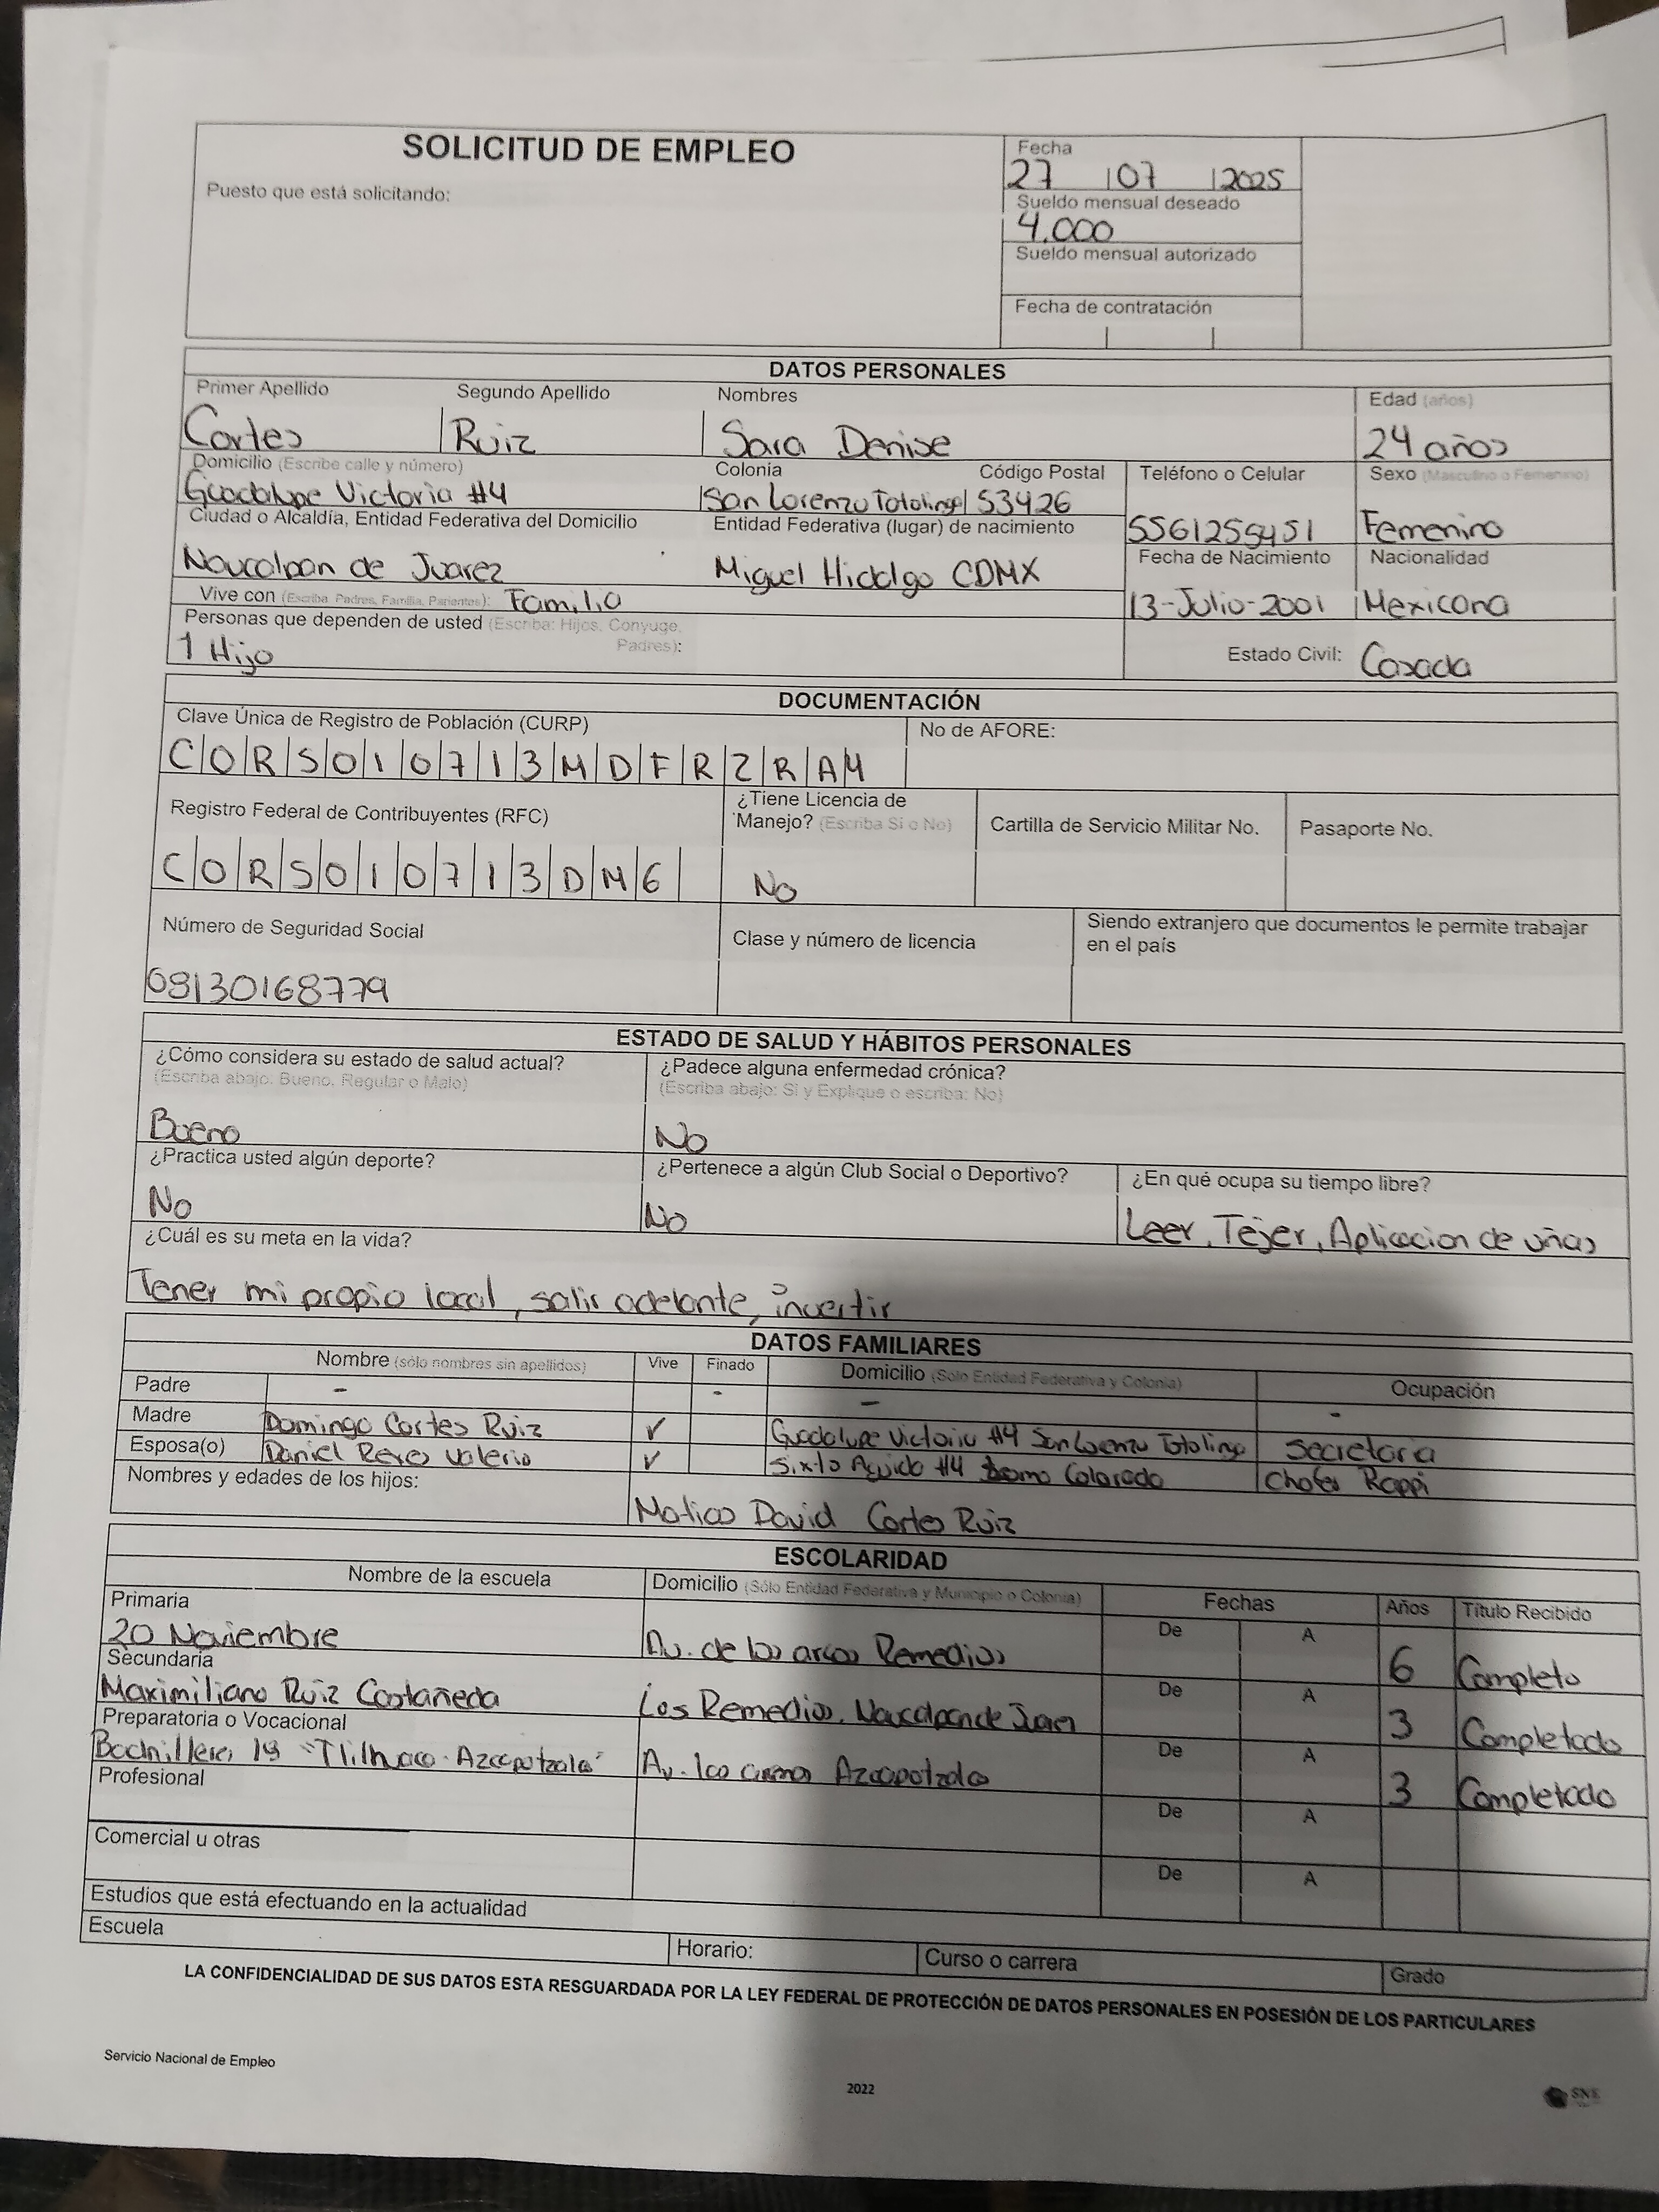 SOLICITUD DE EMPLEO
Puesto que está solicitando:
Fecha
27 | 07 | 2025
Sueldo mensual deseado
4.000
Sueldo mensual autorizado
Fecha de contratación
DATOS PERSONALES
Primer Apellido Segundo Apellido Nombres Edad (años)
Cortes Ruiz Sara Denise 24 años
Domicilio (Escribe calle y número) Colonia Código Postal Teléfono o Celular Sexo (Masculino o Femenino)
Guadalupe Victoria #4 San Lorenzo Totolinga 53426 5561259451 Femenino
Ciudad o Alcaldía, Entidad Federativa del Domicilio Entidad Federativa (lugar) de nacimiento Fecha de Nacimiento Nacionalidad
Naucalpan de Juarez Miguel Hidalgo CDMX 13-Julio-2001 Mexicana
Vive con (Escriba. Padres, Familia, Parientes): Familia
Personas que dependen de usted (Escriba: Hijos, Conyuge, Padres):
1 Hijo
Estado Civil: Casada
DOCUMENTACIÓN
Clave Única de Registro de Población (CURP) No de AFORE:
C O R S 0 1 0 7 1 3 M D F R Z R A 4
Registro Federal de Contribuyentes (RFC) ¿Tiene Licencia de Manejo? (Escriba Si o No) Cartilla de Servicio Militar No. Pasaporte No.
C O R S 0 1 0 7 1 3 D M 6 No
Número de Seguridad Social Clase y número de licencia Siendo extranjero que documentos le permite trabajar en el país
08130168779
ESTADO DE SALUD Y HÁBITOS PERSONALES
¿Cómo considera su estado de salud actual? ¿Padece alguna enfermedad crónica?
(Escriba abajo: Bueno, Regular o Malo) (Escriba abajo: Si y Explique o escriba: No)
Bueno No
¿Practica usted algún deporte? ¿Pertenece a algún Club Social o Deportivo? ¿En qué ocupa su tiempo libre?
No No Leer, Tejer, Aplicacion de uñas
¿Cuál es su meta en la vida?
Tener mi propio local, salir adelante, invertir
DATOS FAMILIARES
Nombre (sólo nombres sin apellidos) Vive Finado Domicilio (Sólo Entidad Federativa y Colonia) Ocupación
Padre - - - -
Madre Domingo Cortes Ruiz ✓ Guadalupe Victoria #4 San Lorenzo Totolinga secretaria
Esposa(o) Daniel Reyes Valerio ✓ Sixto #4 Loma Colorado Chofer Rappi
Nombres y edades de los hijos:
Matias David Cortes Ruiz
ESCOLARIDAD
Nombre de la escuela Domicilio (Sólo Entidad Federativa y Municipio o Colonia) Fechas Años Título Recibido
Primaria De A
20 Noviembre Av. de los arcos Remedios 6 Completo
Secundaria De A
Maximiliano Ruiz Castañeda Los Remedios. Naucalpan de Juarez 3 Completado
Preparatoria o Vocacional De A
Bachilleres 18 "Tlilhuaca-Azcapotzalco" Av. Azcapotzalco 3 Completado
Profesional De A
Comercial u otras De A
Estudios que está efectuando en la actualidad
Escuela Horario: Curso o carrera Grado
LA CONFIDENCIALIDAD DE SUS DATOS ESTA RESGUARDADA POR LA LEY FEDERAL DE PROTECCIÓN DE DATOS PERSONALES EN POSESIÓN DE LOS PARTICULARES
Servicio Nacional de Empleo
2022
SNE